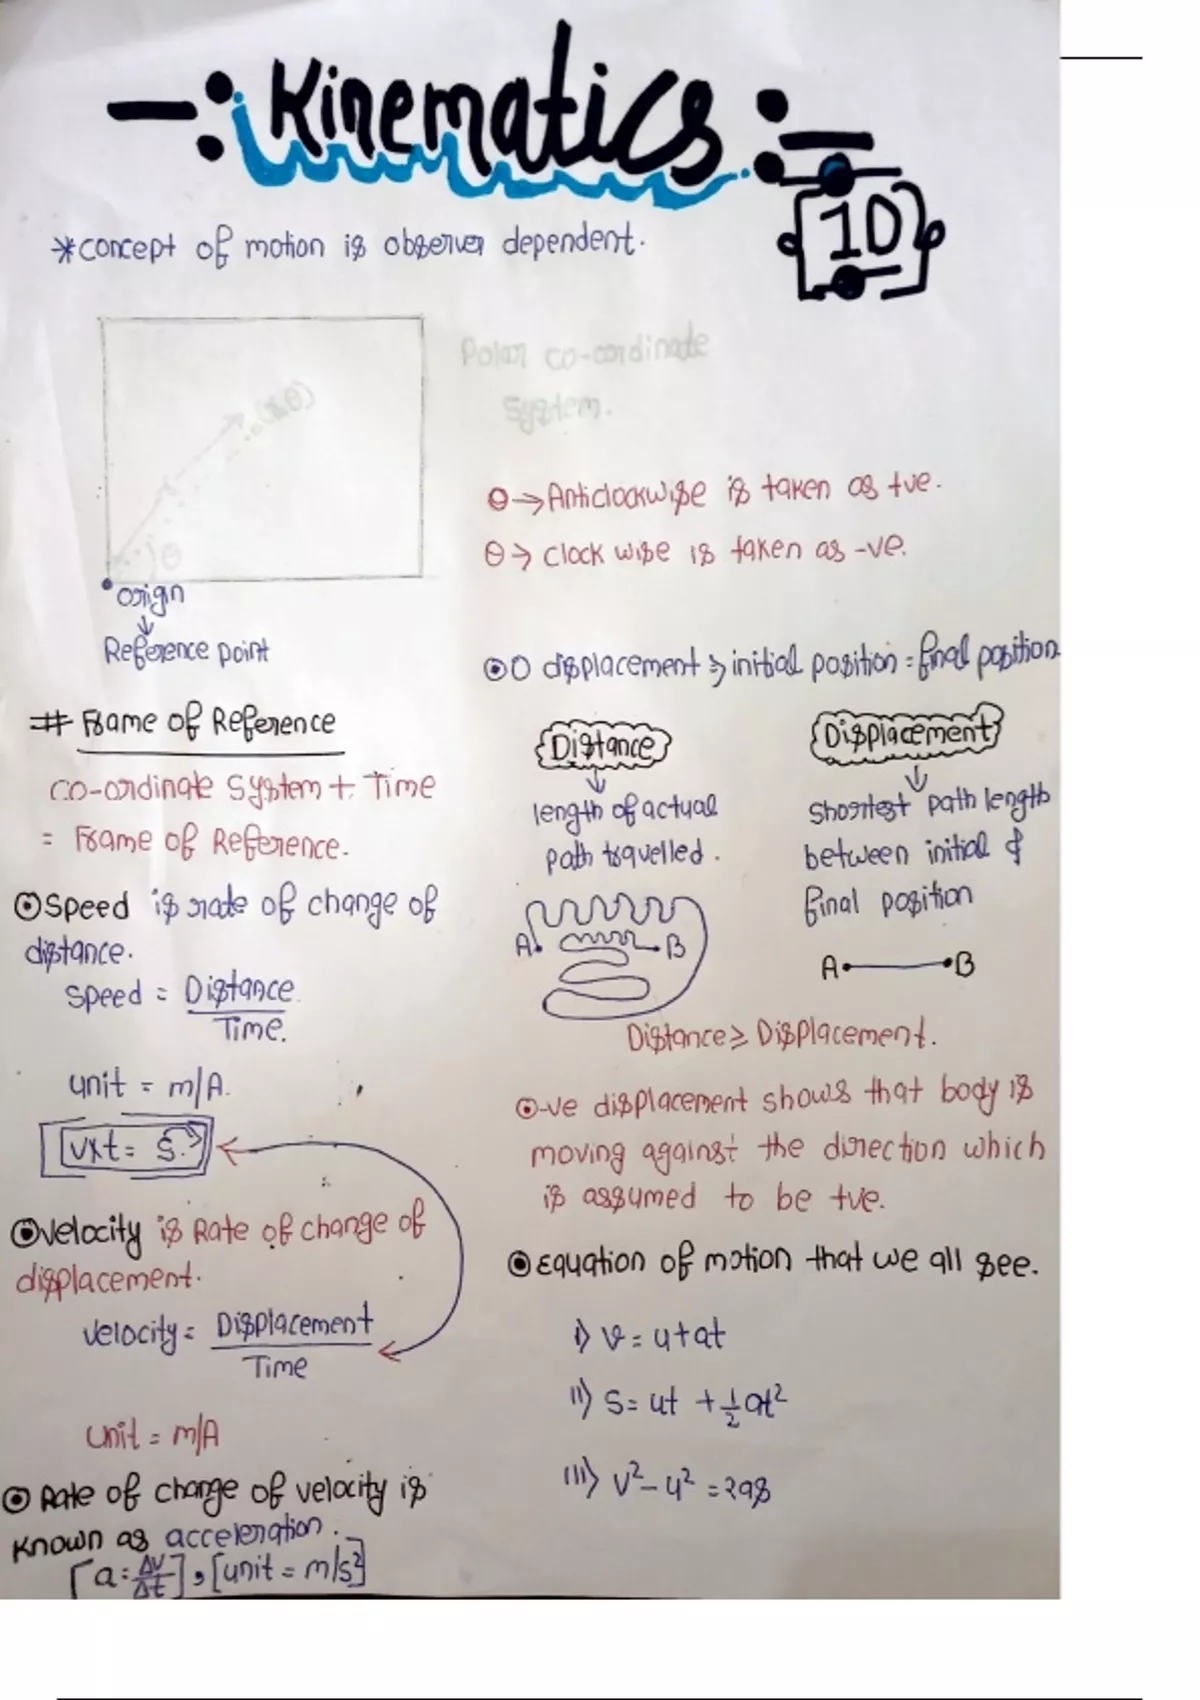 -: Kinematics :-
1D
*concept of motion is observer dependent.
Polar co-ordinate
System.
(r,θ)
θ
θ→Anticlockwise is taken as +ve.
θ→ clock wise is taken as -ve.
origin
Reference point
0 displacement ⇒ initial position = final position
# Frame of Reference
co-ordinate system + Time
= Frame of Reference.
Speed is rate of change of
distance.
Speed = Distance
Time.
unit = m/s.
vxt = S.
Velocity is Rate of change of
displacement.
Velocity = Displacement
Time
Unit = m/s
Rate of change of velocity is
known as acceleration.
[a = Δv/Δt], [unit = m/s²]
Distance
length of actual
path travelled.
A B
Displacement
Shortest path length
between initial &
final position
A B
Distance ≥ Displacement.
-ve displacement shows that body is
moving against the direction which
is assumed to be +ve.
Equation of motion that we all see.
i) v = u+at
ii) S = ut + 1/2 at²
iii) v² - u² = 2as